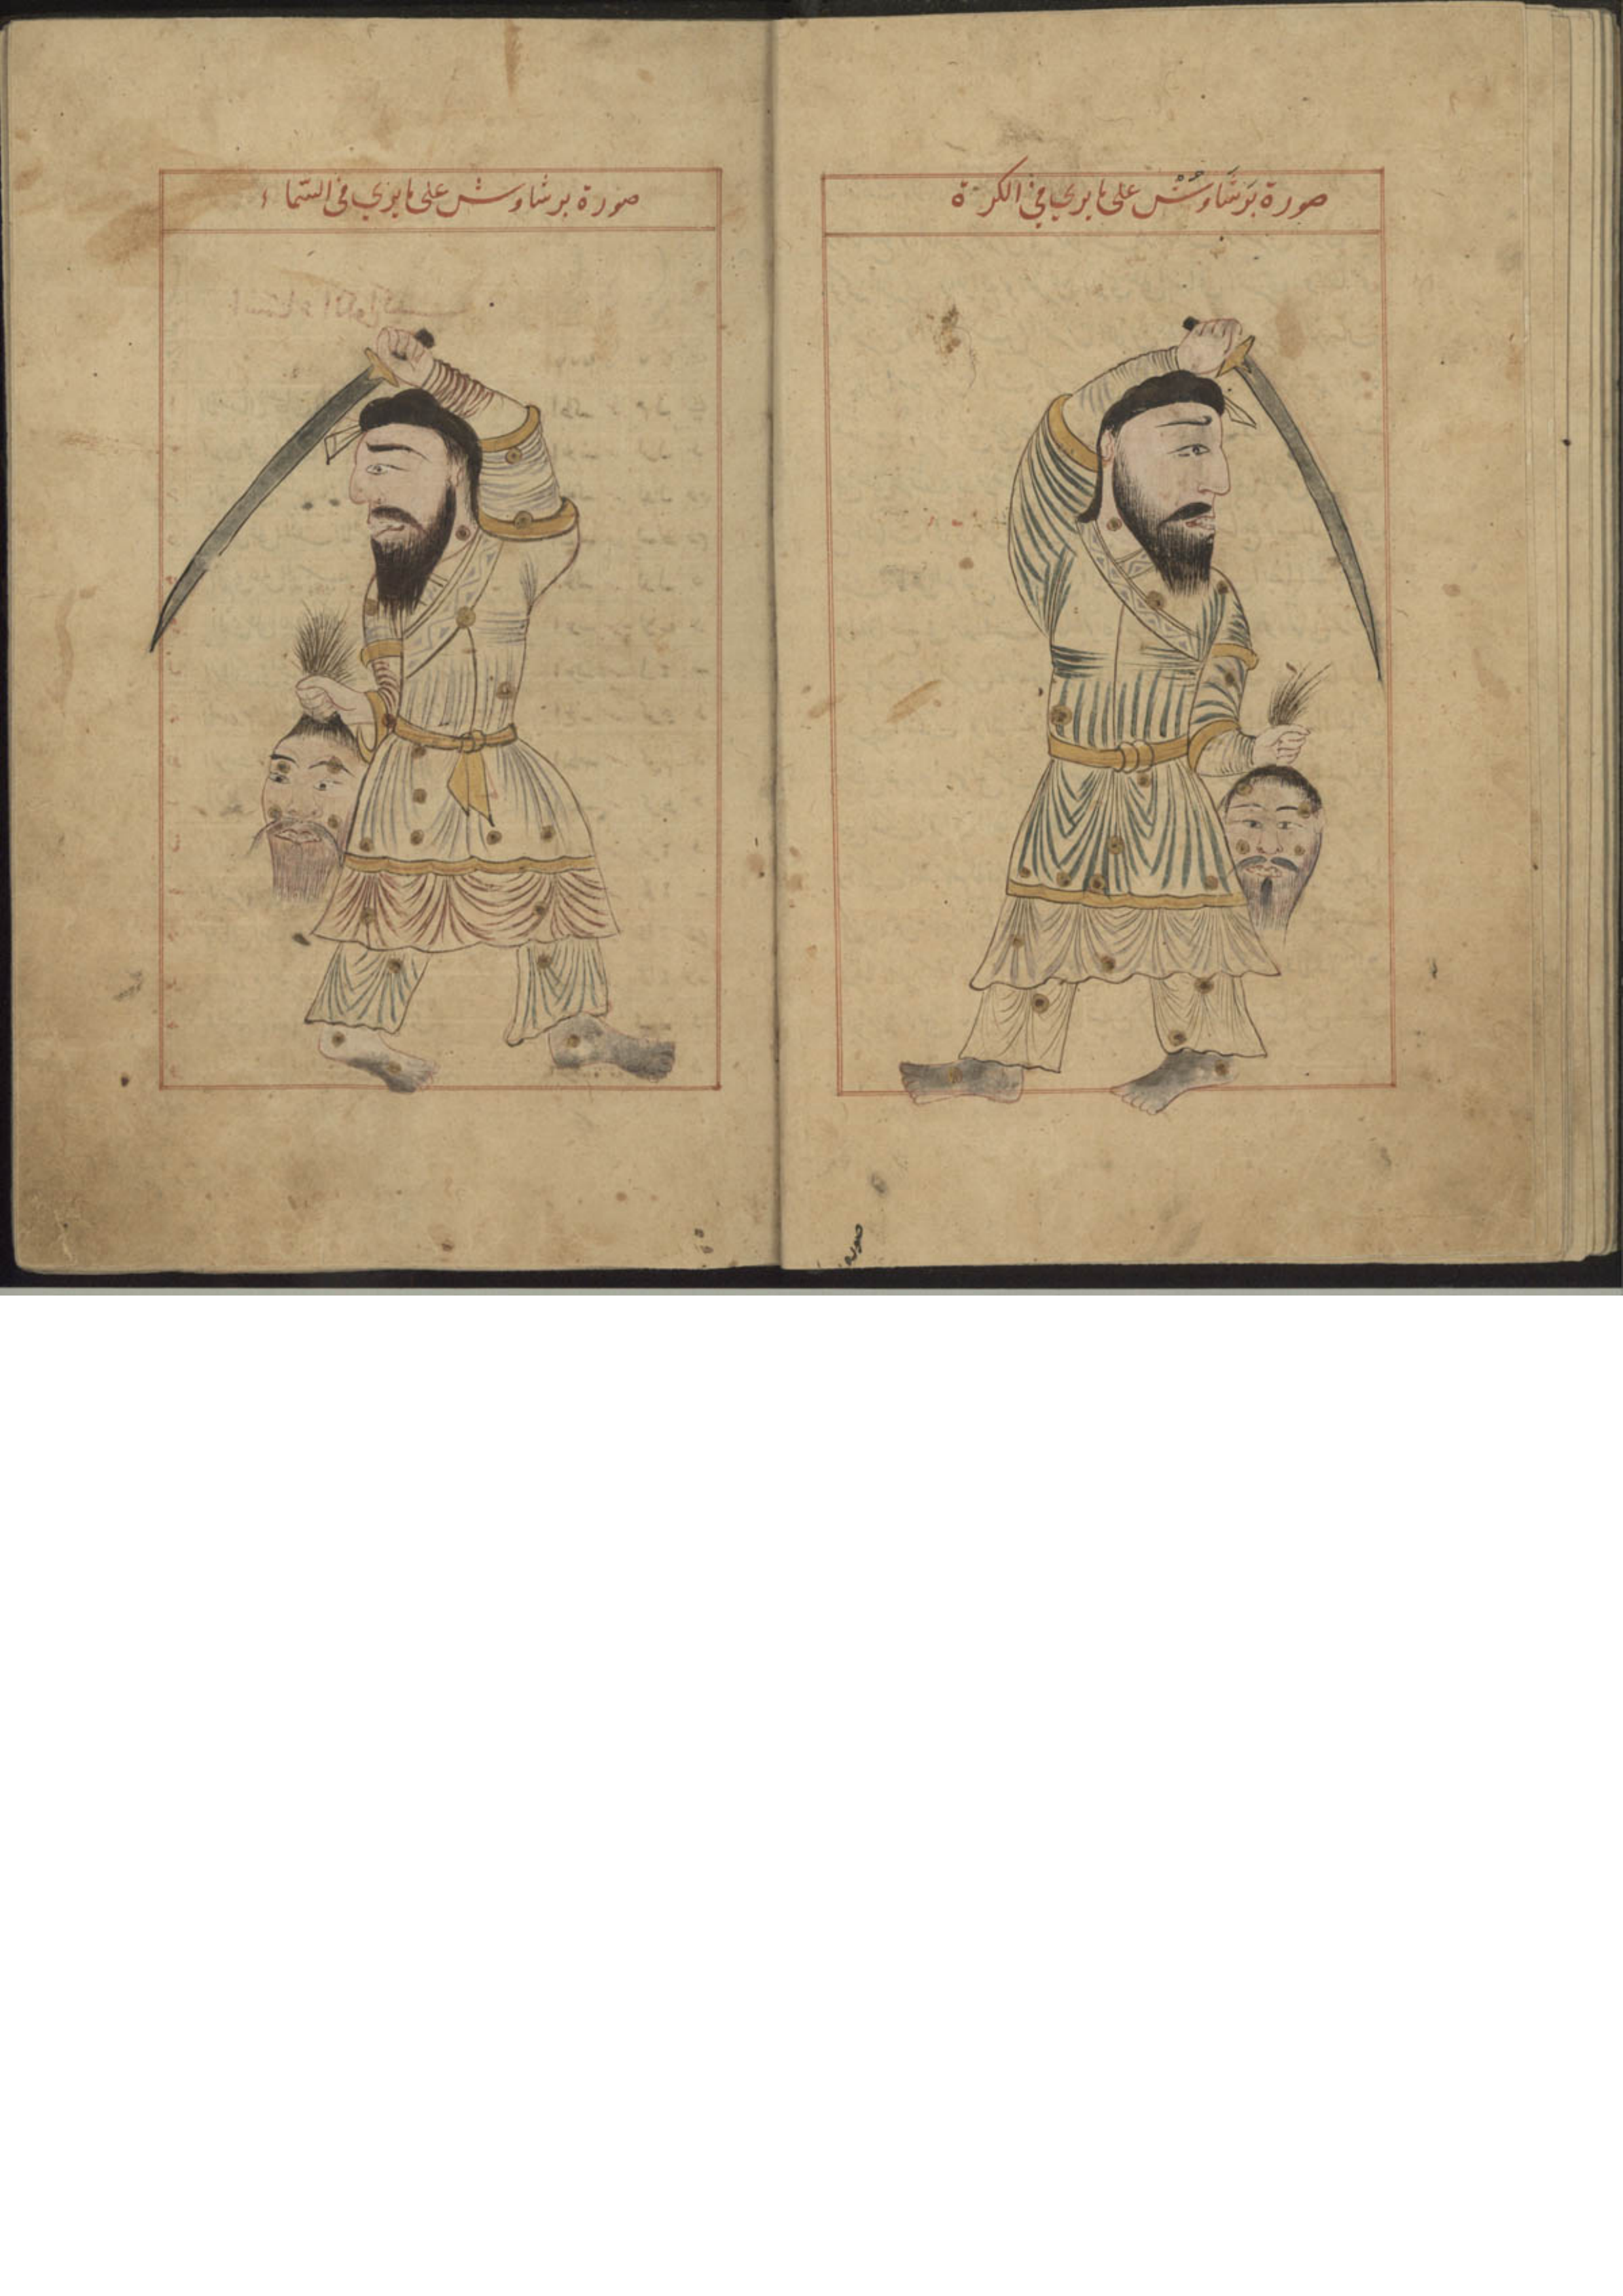 صورة بَرشَاوُشْ على ما يرى في الكرة
صورة برشاوش على ما يرى في السّماء
صورة